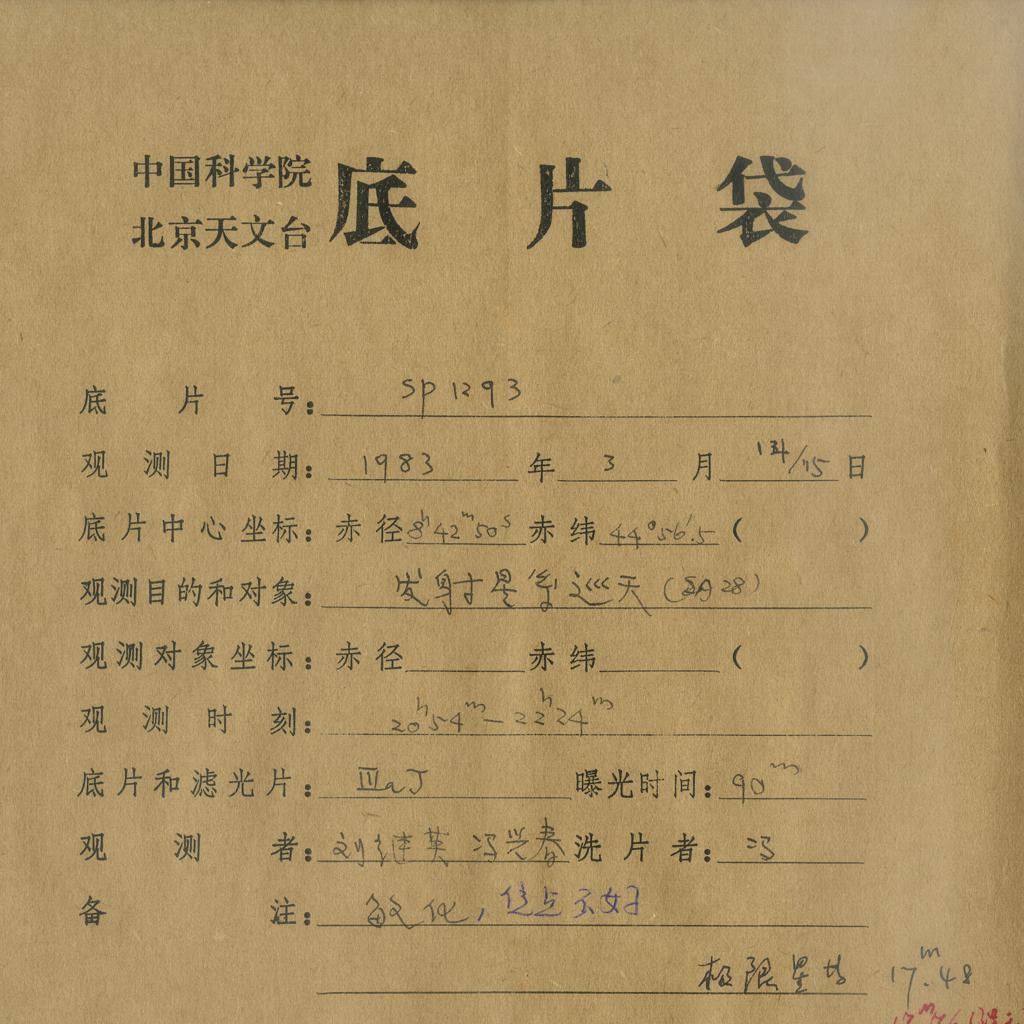 中国科学院
北京天文台 底片袋
底片号: SP1293
观测日期: 1983 年 3 月 /15 日
底片中心坐标: 赤径 8h42m50s 赤纬 44°56'.5 ( )
观测目的和对象: 发射星系巡天 ( 28)
观测对象坐标: 赤径 赤纬 ( )
观测时刻: 20h54m—22h24m
底片和滤光片: ⅢaJ 曝光时间: 90m
观测者: 刘继英 冯兴春 洗片者: 冯
备注: 敏化, 焦点不好
极限星等 17m.48